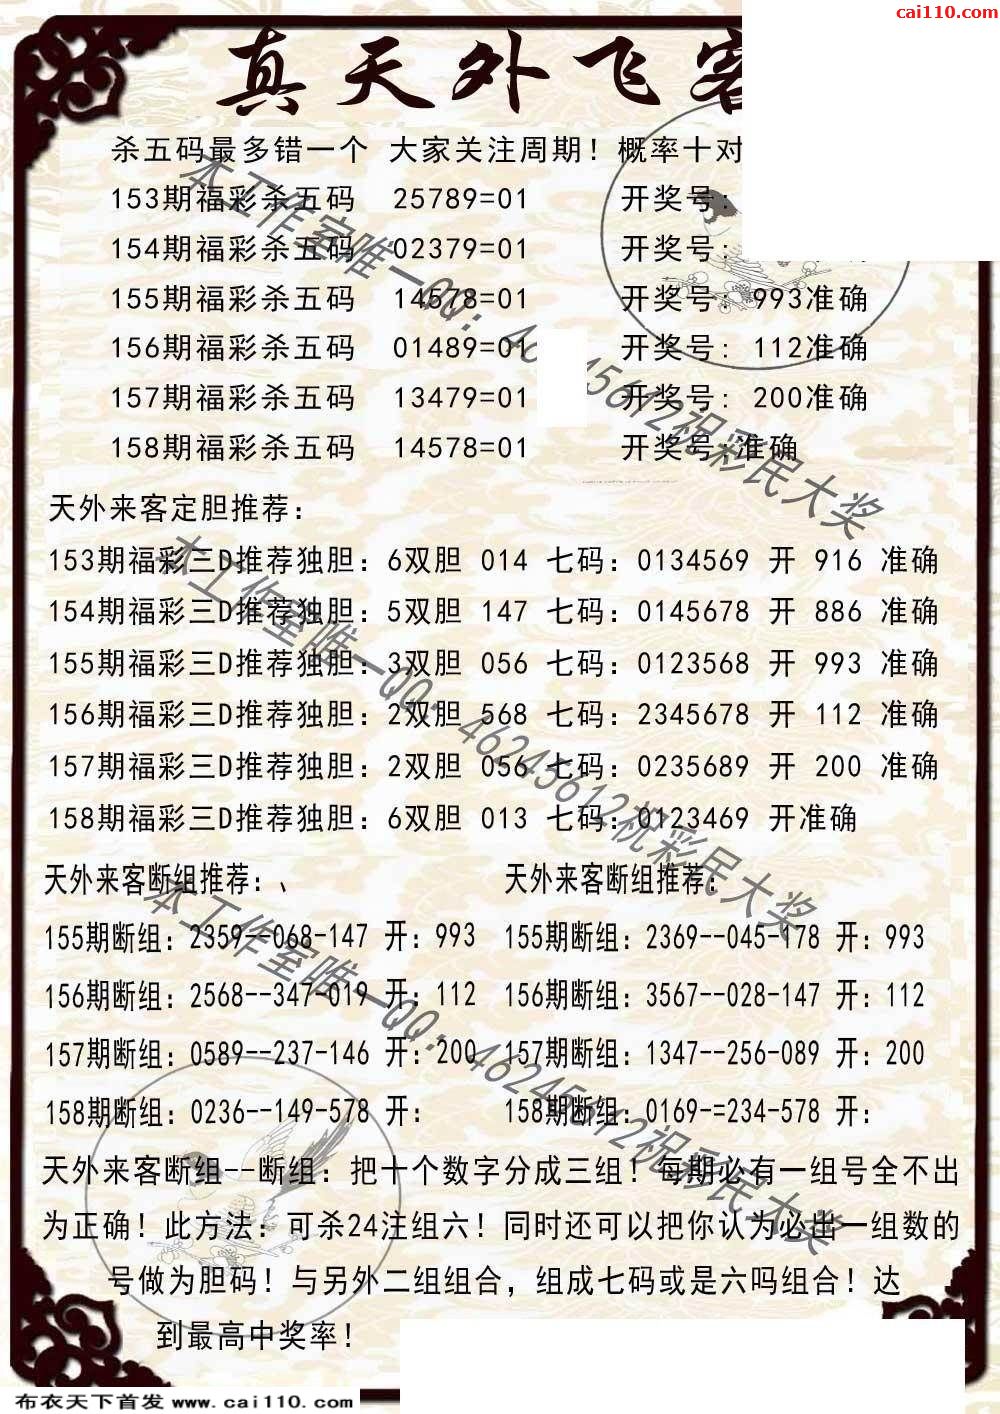 cai110.com
真天外飞客
杀五码最多错一个 大家关注周期！概率十对
153期福彩杀五码 25789=01 开奖号:
154期福彩杀五码 02379=01 开奖号:
155期福彩杀五码 14578=01 开奖号: 993准确
156期福彩杀五码 01489=01 开奖号: 112准确
157期福彩杀五码 13479=01 开奖号: 200准确
158期福彩杀五码 14578=01 开奖号:准确
天外来客定胆推荐:
153期福彩三D推荐独胆: 6双胆 014 七码: 0134569 开 916 准确
154期福彩三D推荐独胆: 5双胆 147 七码: 0145678 开 886 准确
155期福彩三D推荐独胆: 3双胆 056 七码: 0123568 开 993 准确
156期福彩三D推荐独胆: 2双胆 568 七码: 2345678 开 112 准确
157期福彩三D推荐独胆: 2双胆 056 七码: 0235689 开 200 准确
158期福彩三D推荐独胆: 6双胆 013 七码: 0123469 开准确
天外来客断组推荐:、 天外来客断组推荐:
155期断组: 2359--068-147 开: 993 155期断组: 2369--045-178 开: 993
156期断组: 2568--347-019 开: 112 156期断组: 3567--028-147 开: 112
157期断组: 0589--237-146 开: 200 157期断组: 1347--256-089 开: 200
158期断组: 0236--149-578 开: 158期断组: 0169-=234-578 开:
天外来客断组--断组: 把十个数字分成三组！每期必有一组号全不出
为正确！此方法: 可杀24注组六！同时还可以把你认为必出一组数的
号做为胆码！与另外二组组合，组成七码或是六吗组合！达
到最高中奖率！
本工作室唯一QQ: 46245612祝彩民大奖
本工作室唯一QQ: 46245612祝彩民大奖
本工作室唯一QQ: 46245612祝彩民大奖
布衣天下首发 www.cai110.com